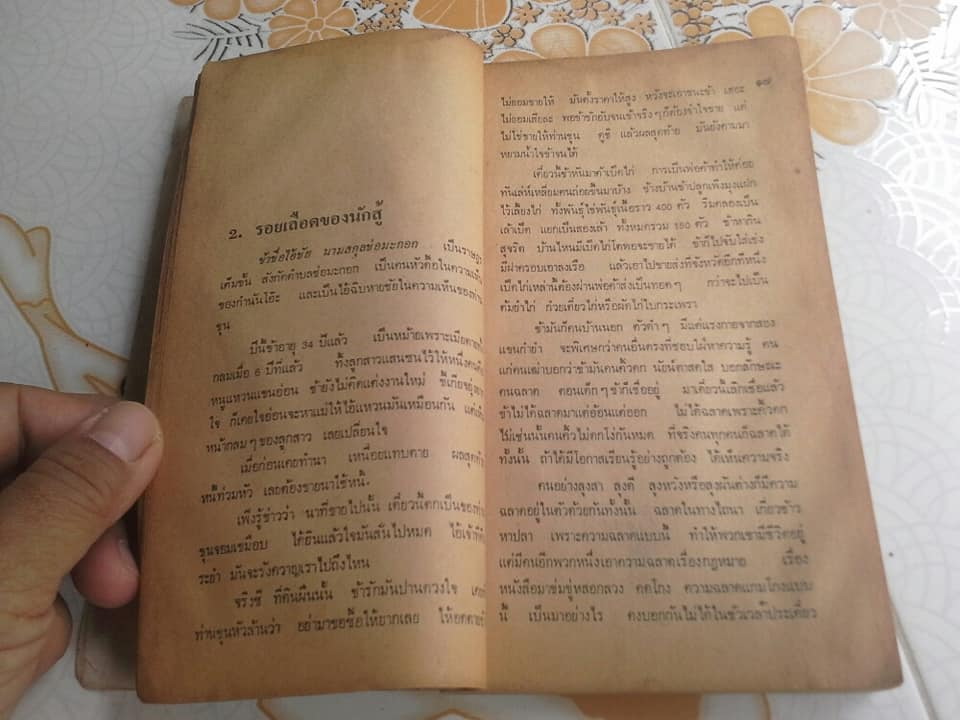 2. รอยเลือดของนักสู้
ข้าชื่อไอ้ชัย นามสกุลช่อมะกอก เป็นราษฎร
เต็มขั้น สังกัดตำบลช่อมะกอก เป็นคนหัวดื้อในความเห็น
ของกำนันโอ๊ะ และเป็นไอ้ฉิบหายชัยในความเห็นของท่าน
ขุน
ปีนี้ข้าอายุ 34 ปีแล้ว เป็นหม้ายเพราะเมียตาย
กลมเมื่อ 6 ปีที่แล้ว ทิ้งลูกสาวแสนซนไว้ให้หนึ่งคนคือ
หนูแหวนแขนอ่อน ข้ายังไม่คิดแต่งงานใหม่ ขี้เกียจยุ่งยาก
ใจ ก็เคยใจอ่อนจะหาแม่ให้ไอ้แหวนมันเหมือนกัน แต่เห็น
หน้ากลม ๆ ของลูกสาว เลยเปลี่ยนใจ
เมื่อก่อนเคยทำนา เหนื่อยแทบตาย ผลสุดท้าย
หนี้ท่วมหัว เลยต้องขายนาใช้หนี้
เพิ่งรู้ข่าวว่า นาที่ขายไปนั้น เดี๋ยวนี้ตกเป็นของท่าน
ขุนจอมเขมือบ ได้ยินแล้วใจมันสั่นไปหมด ไอ้เจ้าที่ดิน
ระยำ มันจะรังควาญเราไปถึงไหน
จริงซี ที่ดินผืนนั้น ข้ารักมันปานดวงใจ เคย
ท่านขุนหัวล้านว่า อย่ามาขอซื้อให้ยากเลย ให้อดตายข้า
๑๗
ไม่ยอมขายให้ มันตั้งราคาให้สูง หวังจะเอาชนะข้า เชอะ
ไม่ยอมเสียละ พอข้าขัดอับจนเข้าจริง ๆ ก็ต้องจำใจขาย แต่
ไม่ใช่ขายให้ท่านขุน ดูซิ แล้วผลสุดท้าย มันยังตามมา
หยามน้ำใจข้าจนได้
เดี๋ยวนี้ข้าหันมาค้าเป็ดไก่ การเป็นพ่อค้าทำให้ค่อย
ทันเล่ห์เหลี่ยมคนถ่อยขึ้นมาบ้าง ข้างบ้านข้าปลูกเพิงมุงแฝก
ไว้เลี้ยงไก่ ทั้งพันธุ์ไข่พันธุ์เนื้อราว 400 ตัว ริมคลองเป็น
เล้าเป็ด แยกเป็นสองเล้า ทั้งหมดรวม 150 ตัว ข้าหากิน
สุจริต บ้านไหนมีเป็ดไก่โตพอจะขายได้ ข้าก็ไปจับใส่เข่ง
มีฝาครอบเอาลงเรือ แล้วเอาไปขายส่งที่จังหวัดอีกทีหนึ่ง
เป็ดไก่เหล่านี้ต้องผ่านพ่อค้าส่งเป็นทอด ๆ กว่าจะไปเป็น
ต้มยำไก่ ก๋วยเตี๋ยวไก่หรือผัดไก่ใบกระเพรา
ข้ามันก็คนบ้านนอก ตัวดำ ๆ มีแต่แรงกายจากสอง
แขนกำยำ จะพิเศษกว่าคนอื่นตรงที่ชอบใฝ่หาความรู้ คน
แก่คนเฒ่าบอกว่าข้ามันคนคิ้วดก นัยน์ตาสดใส บอกลักษณะ
คนฉลาด ตอนเด็ก ๆ ข้าก็เชื่ออยู่ มาเดี๋ยวนี้เลิกเชื่อแล้ว
ข้าไม่ได้ฉลาดมาแต่อ้อนแต่ออก ไม่ได้ฉลาดเพราะคิ้วดก
ไม่เช่นนั้นคนคิ้วไม่ดกโง่กันหมด ที่จริงคนทุกคนก็ฉลาดได้
ทั้งนั้น ถ้าได้มีโอกาสเรียนรู้อย่างถูกต้อง ได้เห็นความจริง
คนอย่างลุงสา ลุงดี ลุงหวังหรือลุงผันต่างก็มีความ
ฉลาดอยู่ในตัวด้วยกันทั้งนั้น ฉลาดในทางไถนา เกี่ยวข้าว
หาปลา เพราะความฉลาดแบบนี้ ทำให้พวกเขามีชีวิตอยู่
แต่มีคนอีกพวกหนึ่งเอาความฉลาดเรื่องกฎหมาย เรื่อง
หนังสือมาข่มขู่หลอกลวง คดโกง ความฉลาดแกมโกงแบบ
นี้ เป็นมาอย่างไร คงบอกกันไม่ได้ในชั่วเวลาประเดี๋ยว